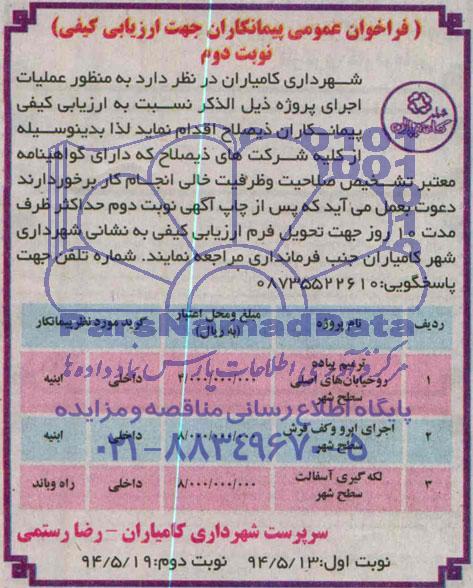 ( فراخوان عمومی پیمانکاران جهت ارزیابی کیفی)
نوبت دوم
شهرداری کامیاران در نظر دارد به منظور عملیات
اجرای پروژه ذیل الذکر نسبت به ارزیابی کیفی
پیمانکاران ذیصلاح اقدام نماید لذا بدینوسیله
از کلیه شرکت های ذیصلاح که دارای گواهینامه
معتبر تشخیص صلاحیت وظرفیت خالی انجام کار برخوردارند
دعوت بعمل می آید که پس از چاپ آگهی نوبت دوم حداکثر ظرف
مدت ۱۰ روز جهت تحویل فرم ارزیابی کیفی به نشانی شهرداری
شهر کامیاران جنب فرمانداری مراجعه نمایند. شماره تلفن جهت
پاسخگویی: ۰۸۷۳۵۵۲۲۶۱۰
ردیف نام پروژه مبلغ ومحل اعتبار (به ریال) گرید مورد نظر پیمانکار
۱ ترمیم پیاده روخیابان‌های اصلی سطح شهر ۲/۰۰۰/۰۰۰/۰۰۰ داخلی ابنیه
۲ اجرای ابرو وکف فرش سطح شهر ۸/۰۰۰/۰۰۰/۰۰۰ داخلی ابنیه
۳ لکه گیری آسفالت سطح شهر ۸/۰۰۰/۰۰۰/۰۰۰ داخلی راه وباند
ParsNamadData
مرکز فرآوری اطلاعات پارس نماد داده ها
پایگاه اطلاع رسانی مناقصه و مزایده
۰۲۱-۸۸۳۴۹۶۷۰-۵
سرپرست شهرداری کامیاران - رضا رستمی
نوبت اول: ۹۴/۵/۱۳ نوبت دوم: ۹۴/۵/۱۹